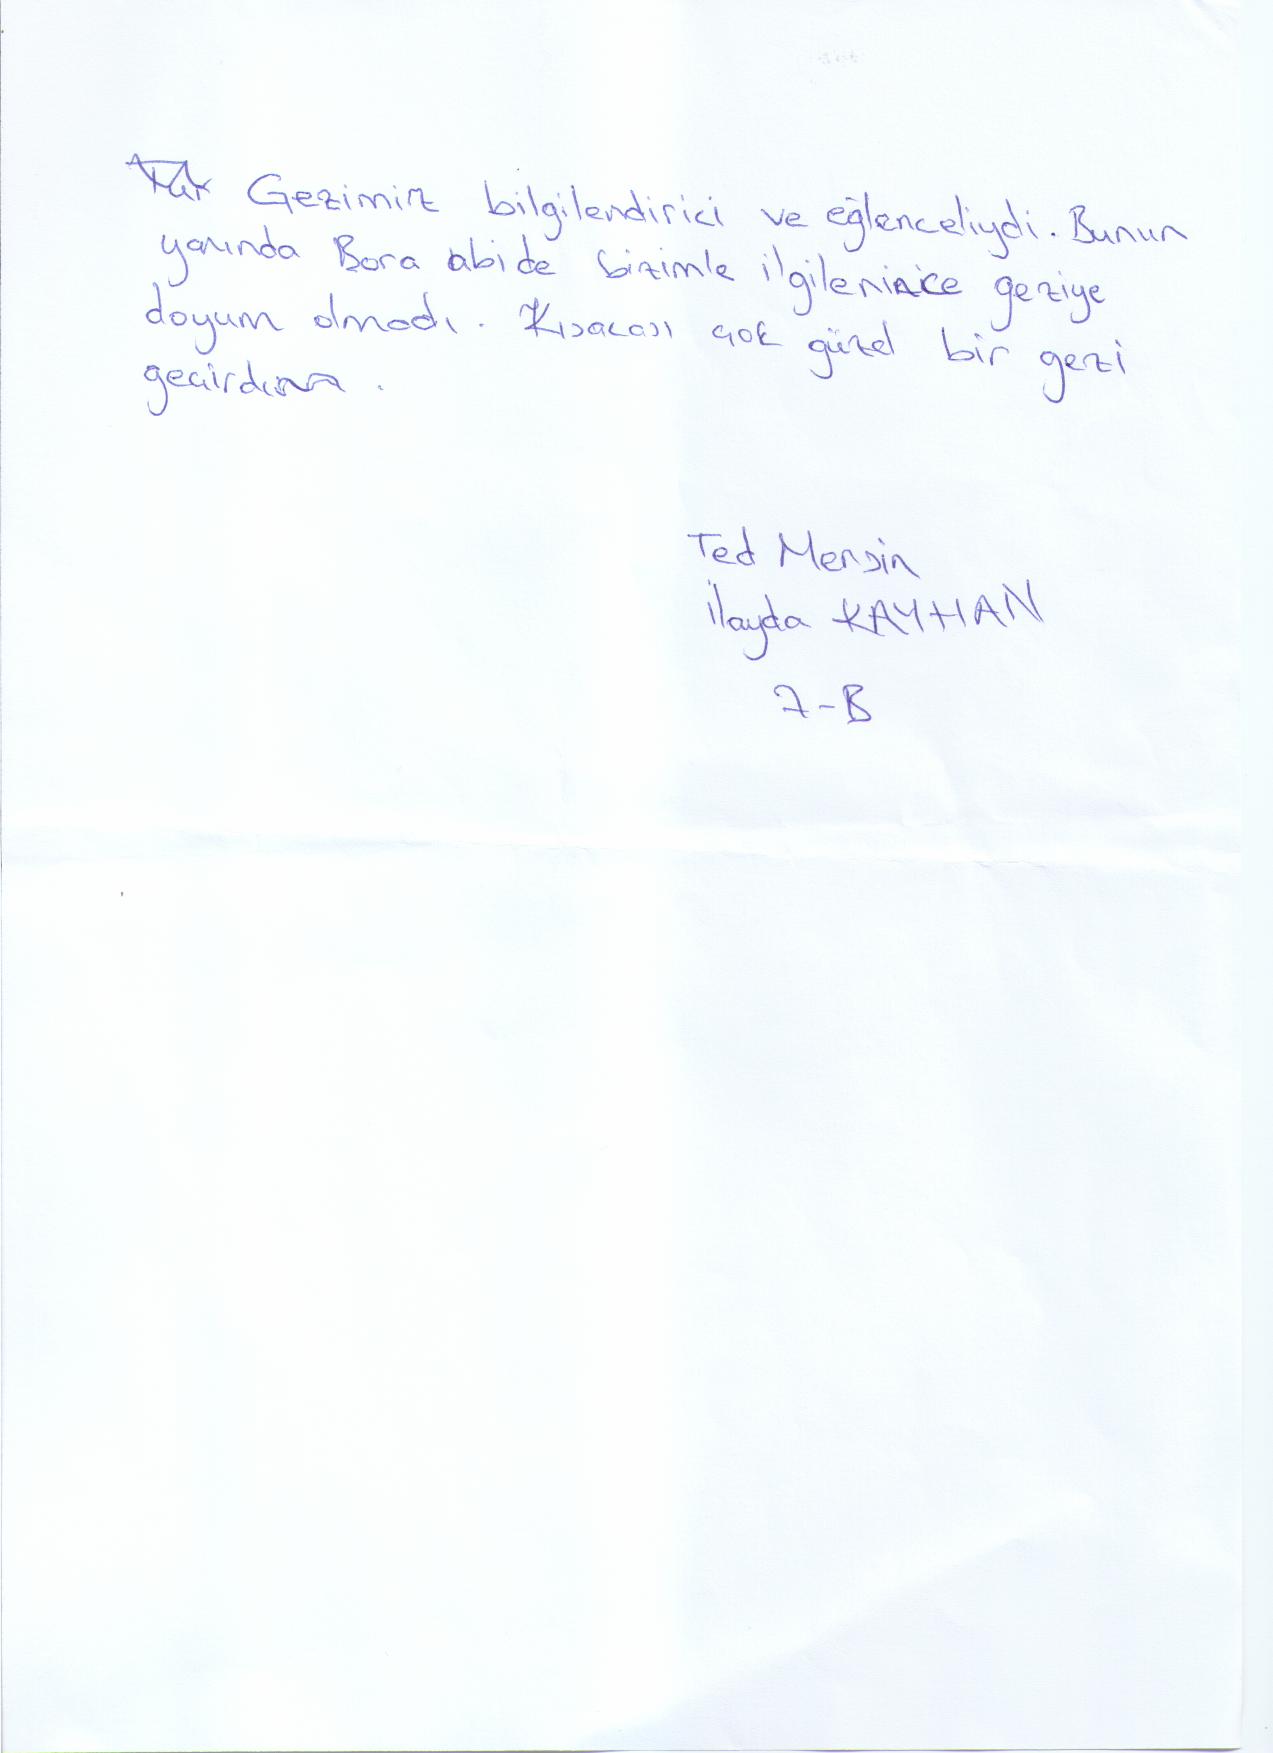 Gezimiz bilgilendirici ve eğlenceliydi. Bunun
yanında Bora abi de bizimle ilgilenince geziye
doyum olmadı. Kısacası çok güzel bir gezi
geçirdım.
Ted Mersin
İlayda KAYHAN
7-B